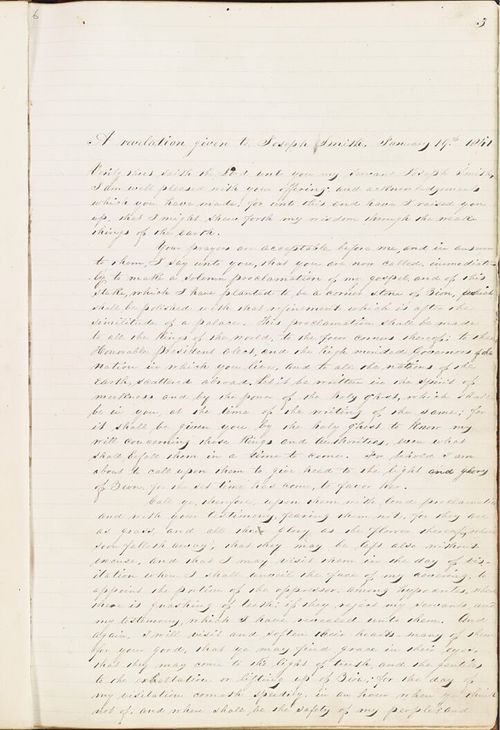 6
3
A revelation given to Joseph Smith, January 19th 1841
Verily thus saith the Lord unto you my servant Joseph Smith,
I am well pleased with your offering and acknowledgements
which you have made, for unto this end have I raised you
up, that I might shew forth my wisdom through the weak
things of the earth.
Your prayers are acceptable before me, and in answer
to them, I say unto you, that you are now called, immediate-
ly, to make a solemn proclamation of my gospel, and of this
stake, which I have planted to be a corner stone of Zion, which
shall be polished with that refinement which is after the
similitude of a palace. This proclamation shall be made
to all the kings of the world, to the four corners thereof; to the
Honorable President elect, and the high minded Governors of the
nation in which you live, and to all the nations of the
earth, scattered abroad. Let it be written in the spirit of
meekness and by the power of the holy ghost, which shall
be in you, at the time of the writing of the same; for
it shall be given you by the holy ghost to know my
will concerning those kings and authorities, even what
shall befall them in a time to come. For behold I am
about to call upon them to give heed to the light and glory
of Zion, for the set time has come, to favor her.
Call ye, therefore, upon them with loud proclamation
and with your testimony, fearing them not, for they are
as grass, and all their glory as the flower thereof which
soon falleth away; that they may be left also without
excuse, and that I may visit them in the day of vis-
itation when I shall unveil the face of my covering, to
appoint the portion of the oppressor, among hypocrites, where
there is gnashing of teeth: if they reject my servants and
my testimony, which I have revealed unto them. And
again, I will visit and soften their hearts many of them
for your good, that ye may find grace in their eyes,
that they may come to the light of truth, and the gentiles
to the exhaltation or lifting up of Zion; for the day of
my visitation cometh speedily, in an hour when ye think
not of, and where shall be the safety of my people? and